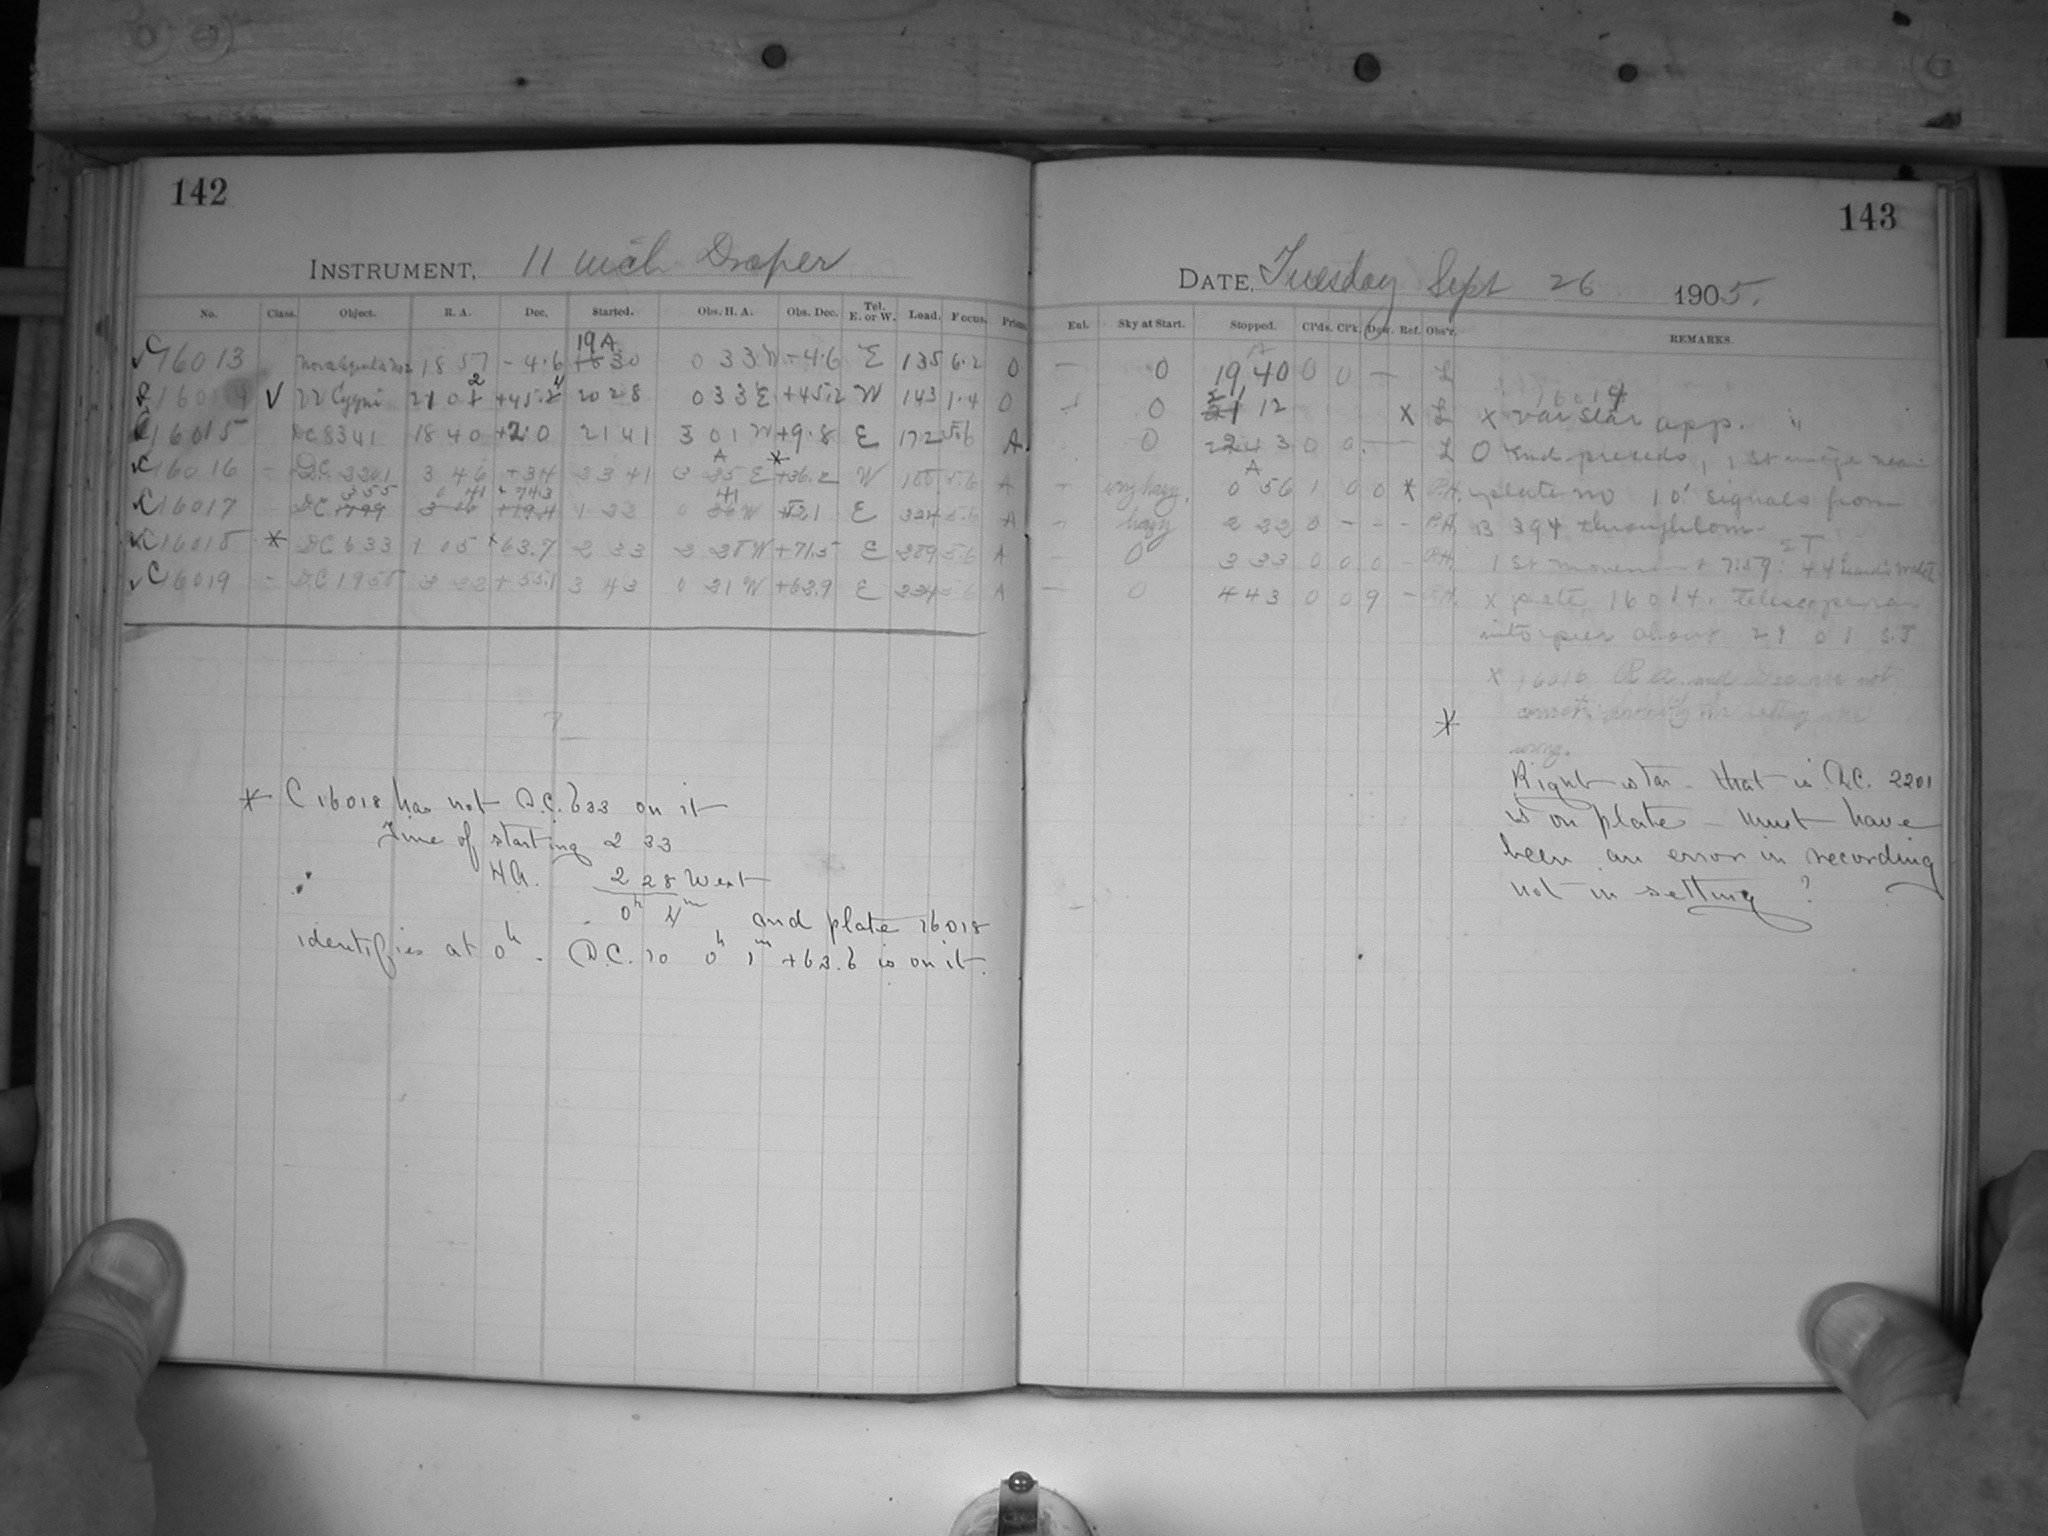 142
INSTRUMENT, 11 inch Draper
No. Class. Object. R. A. Dec. Started. Obs. H. A. Obs. Dec. Tel. E. or W. Load. Focus. Prism
19 A
C16013 Nova Aquilae No 2 18 57 -4.6 0 33 W -4.6 E 135 6.2 0
V VV Cygni +45.2 20 28 0 33 E +45.2 W 143 1.4 0
16015 DC 8341 18 40 +2.0 21 41 3 01 W +9.8 E 172 5.6 A
C16016 - D.C. 2201 3 46 +34 23 41 +36.2 W 5.6 A
C16017 - 355 0 41 +74.3 1 23 E 324 5.6 A
C16018 * DC 633 1 05 +63.7 2 33 2 28 W +71.5 E 289 5.6 A
C16019 - DC 1955 3 22 +55.1 3 43 0 21 W +62.9 E 234 5.6 A
* C 16018 has not D.C. 633 on it
Time of starting 2 33
H.A. 2 28 West
0h 4m and plate 16018
identifies at 0h. D.C. 10 0h 1m +63.6 is on it.
143
DATE, Tuesday Sept 26 1905.
Exl. Sky at Start. Stopped. Cl'ds. Cl'k. Dew. Ref. Obs'r. REMARKS.
- 0 19 40 0 0 - L
0 21 12 X L X var star app.
0 22 43 0 0 - L 0 end preceeds, 1st image near
- very hazy. 0 56 1 0 0 * P.H. plate no 10s signals from
- hazy 2 22 0 - - - P.H. B 394 throughout
- 0 3 33 0 0 0 - P.H. 1st movement 7:59: 44
- 0 4 43 0 0 9 - P.H. X plate 16014. Telescope ran
into pier about 21 01 S.T
X 16016 R.A. and Dec are not
correct, probably the setting was
wrong.
* Right star - that is D.C. 2201
is on plate - Must have
been an error in recording
not in setting ?